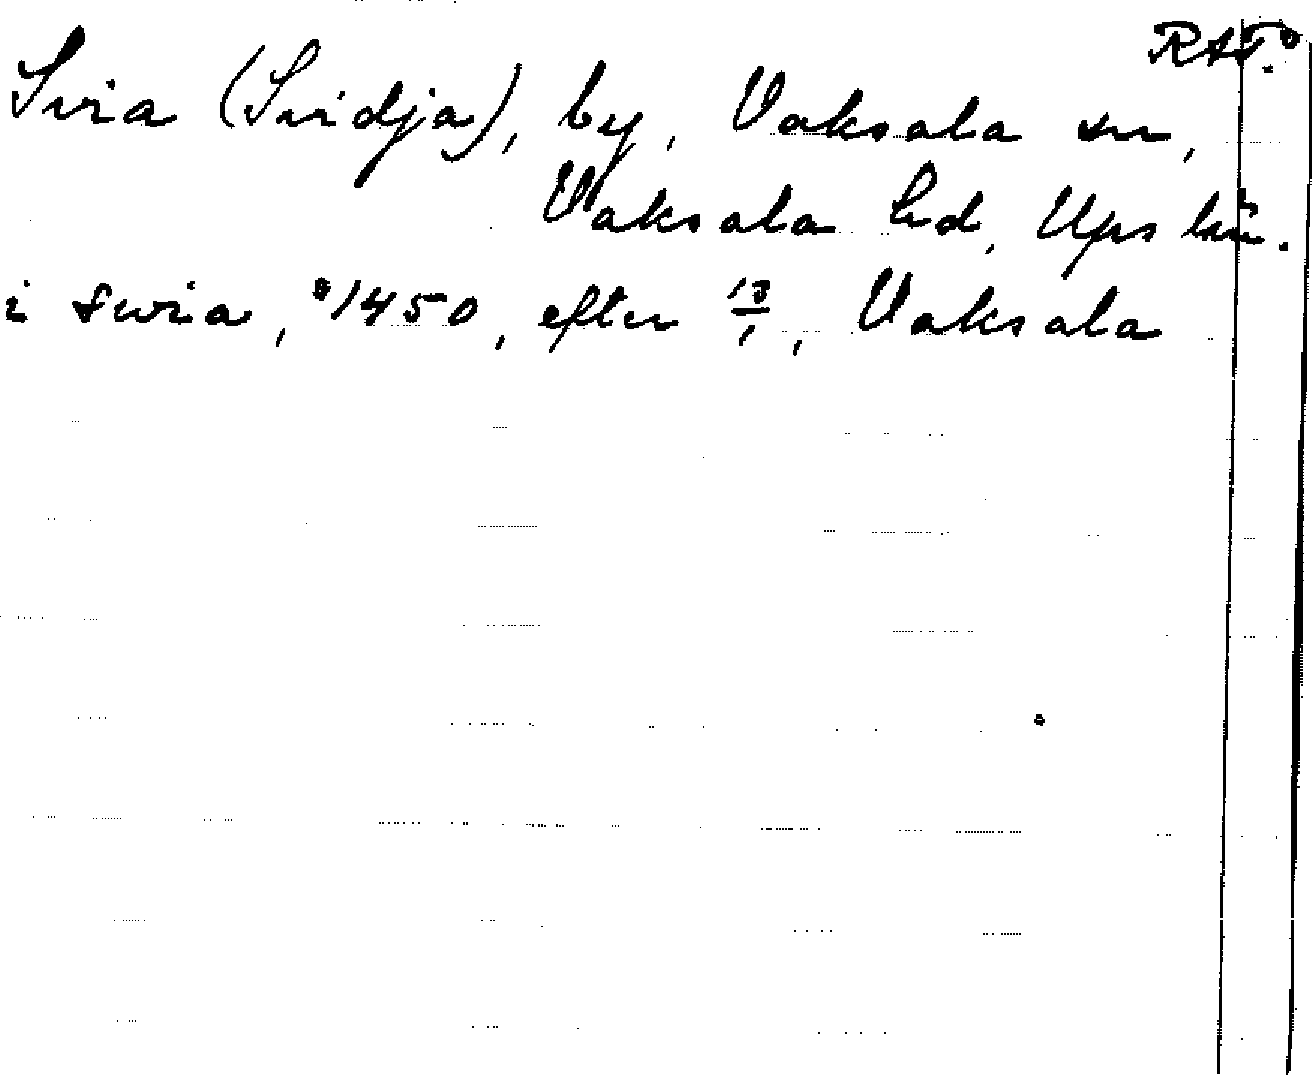 RAT:o
Svia (Svidja), by, Vaksala sn,
Vaksala hd, Ups län.
i swia, 1450, efter 13/1, Vaksala